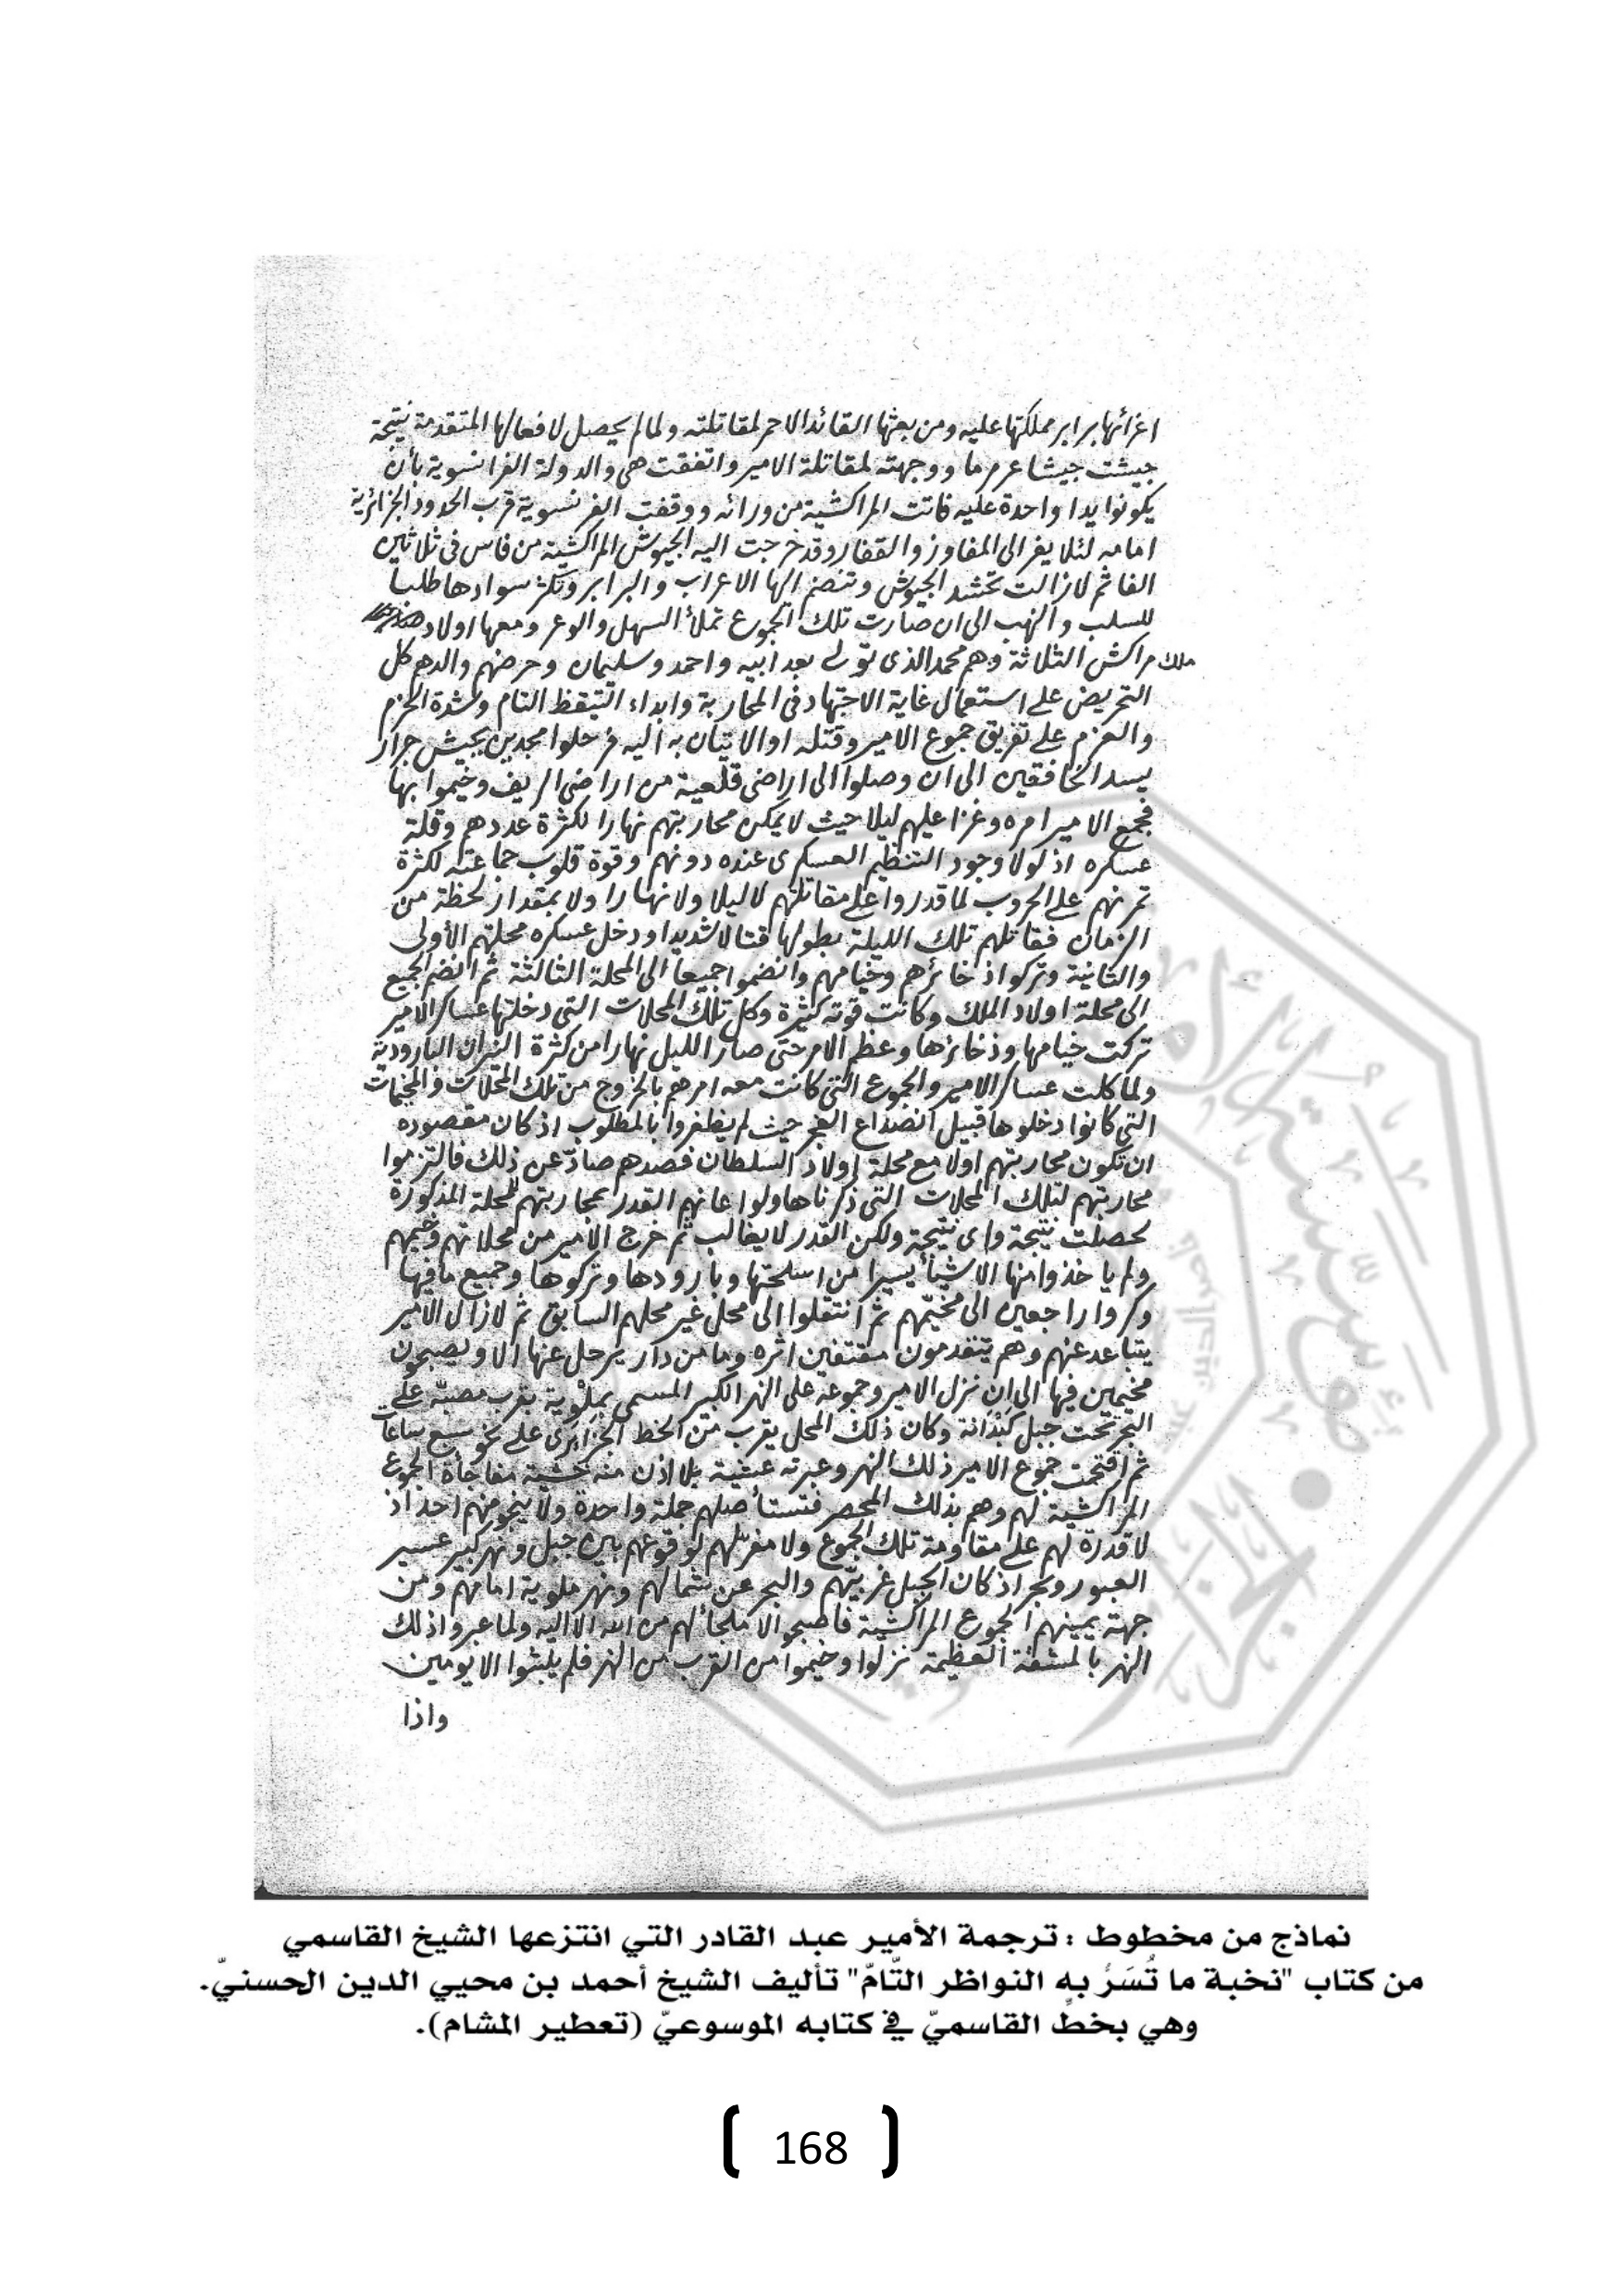 اغرائها برابر مملكتها عليه ومن بعثها القائد الاحمر لمقاتلته ولما لم يحصل لافعالها المتقدمة نتيجة
جيشت جيشا عرمرما ووجهته لمقاتلة الامير واتفقت هى والدولة الفرانسوية بأن
يكونوا يدا واحدة عليه فاتت المراكشية من ورائه ووقفت الفرنسوية قرب الحدود الجزائرية
امامه لئلا يفر الى المفاوز والقفار وقد خرجت اليه الجيوش المراكشية من فاس فى ثلاثين
الفا ثم لازالت تحشد الجيوش وتنضم اليها الاعراب والبرابر وتكثر سوادها طلبا
للسلب والنهب الى ان صارت تلك الجموع تملأ السهل والوعر ومعها اولاد
ملك مراكش الثلاثة وهم محمد الذى تولى بعد ابيه واحمد وسليمان وحرضهم والدهم كل
التحريض على استعمال غاية الاجتهاد فى المحاربة وابداء التيقظ التام وشدة الحزم
والعزم على تفريق جموع الامير وقتله او الاتيان به اليه فرحلوا مجدين بجيش جرار
يسد الخافقين الى ان وصلوا الى اراضى قلعية من اراضى الريف وخيموا بها
فجمع الامير امره وغزا عليهم ليلا حيث لا يمكن محاربتهم نهارا لكثرة عددهم وقلة
عسكره اذ لولا وجود التنظيم العسكرى عنده دونهم وقوة قلوب جماعته لكثرة
تمرنهم على الحروب لما قدروا على مقاتلتهم لا ليلا ولا نهارا ولا بمقدار لحظة من
الزمان فقاتلهم تلك الليلة بطولها قتالا شديدا ودخل عسكره محلتهم الأولى
والثانية وتركوا ذخائرهم وخيامهم وانضموا جميعا الى المحلة الثالثة ثم انضم الجميع
الى محلة اولاد الملك وكانت قوته كثيرة وكل تلك المحلات التى دخلتها عساكر الامير
تركت خيامها وذخائرها وعظم الامر حتى صار الليل نهارا من كثرة النيران البارودية
ولما كلت عساكر الامير والجموع التى كانت معه امرهم بالخروج من تلك المحلات والمخيمات
التي كانوا دخلوها قبيل انصداع الفجر حيث لم يظفروا بالمطلوب اذ كان مقصوده
ان تكون محاربتهم اولا مع محلة اولاد السلطان فصدهم صادّ عن ذلك فالتزموا
محاربتهم لتلك المحلات التى ذكرناها ولو اعانهم القدر بمحاربتهم للمحلة المذكورة
لحصلت نتيجة واى نتيجة ولكن القدر لا يغالب ثم خرج الامير من محلاتهم وخيمهم
ولم ياخذوا منها الا شيأ يسيرا من اسلحتها وبارودها وتركوها وجميع ما فيها
وكروا راجعين الى مخيمهم ثم انتقلوا الى محل غير محلهم السابق ثم لازال الامير
يتباعد عنهم وهم يتقدمون مقتفين اثره وما من دار يرحل عنها الا ويصبحون
مخيمين فيها الى ان نزل الامير وجموعه على النهر الكبير المسمى بملوية بقرب مصبّه على
البحر تحت جبل كبدانة وكان ذلك المحل يقرب من الخط الجزائرى على نحو سبع ساعات
ثم اقتحمت جموع الامير ذلك النهر وعبرته عشية بلا اذن منه خشية مفاجأة الجموع
المراكشية لهم وهم بذلك المحصر فتستأصلهم جملة واحدة ولا ينجو منهم احد اذ
لا قدرة لهم على مقاومة تلك الجموع ولا مفر لهم لوقوعهم بين جبل ونهر كبير عسير
العبور وبحر اذ كان الجبل غربيّهم والبحر عن شمالهم ونهر ملوية امامهم ومن
جهة يمينهم الجموع المراكشية فاصبحوا لا ملجأ لهم من الله الا اليه ولما عبروا ذلك
النهر بالمشقة العظيمة نزلوا وخيموا من القرب من النهر فلم يلبثوا الا يومين
واذا
نماذج من مخطوط : ترجمة الأمير عبد القادر التي انتزعها الشيخ القاسمي
من كتاب "نخبة ما تُسَرُّ به النواظر التّامّ" تأليف الشيخ أحمد بن محيي الدين الحسنيّ.
وهي بخطِّ القاسميّ في كتابه الموسوعيّ (تعطير المشام).
168